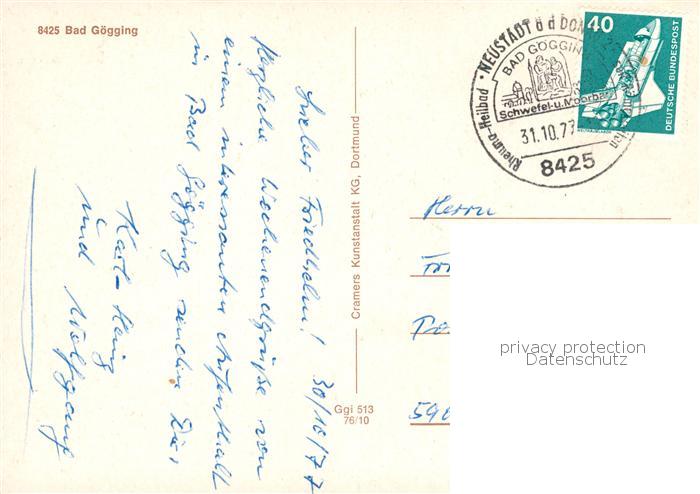 8425 Bad Gögging
Lieber Friedhelm! 30/10/77
Herzliche Wochenendgrüße von
einem interessanten Aufenthalt
in Bad Gögging senden Dir
Karl-Heinz
und Wolfgang
Cramers Kunstanstalt KG, Dortmund
Ggi 513
76/10
NEUSTADT a d DON
BAD GÖGGIN
Schwefel-u. Moorba
Rheuma-Heilbad
31.10.77
8425
40
DEUTSCHE BUNDESPOST
Herrn
590
privacy protection
Datenschutz